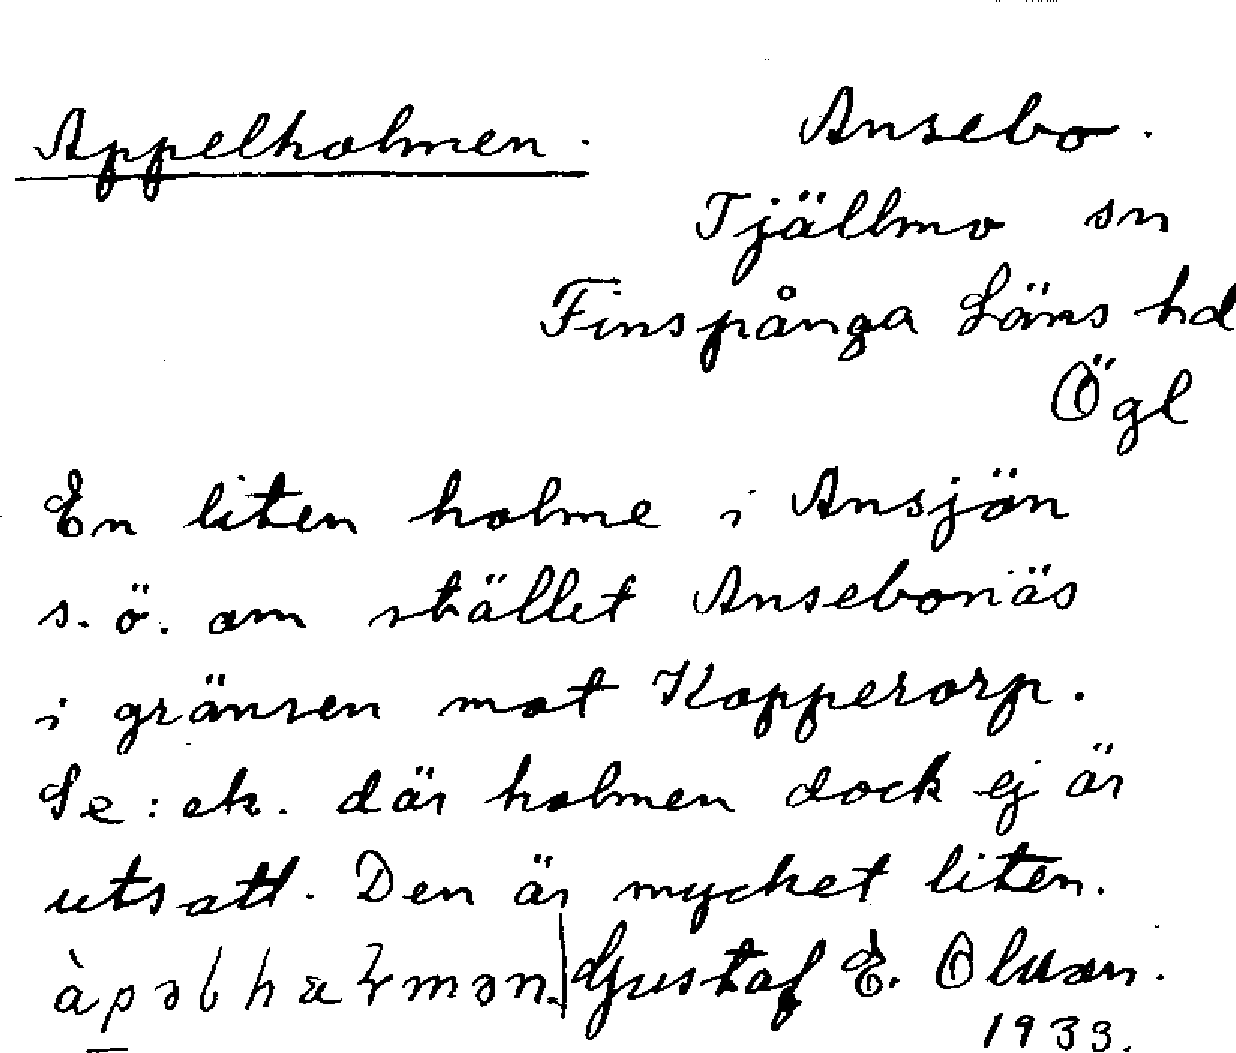 Appelholmen.
Ansebo.
Tjällmo sn
Finspånga Läns hd
Ögl
En liten holme i Ansjön
s.ö. om stället Ansebonäs
i gränsen mot Kopperorp.
Se: ek. där holmen dock ej är
utsatt. Den är mycket liten.
Gustaf E. Olsson.
1933.